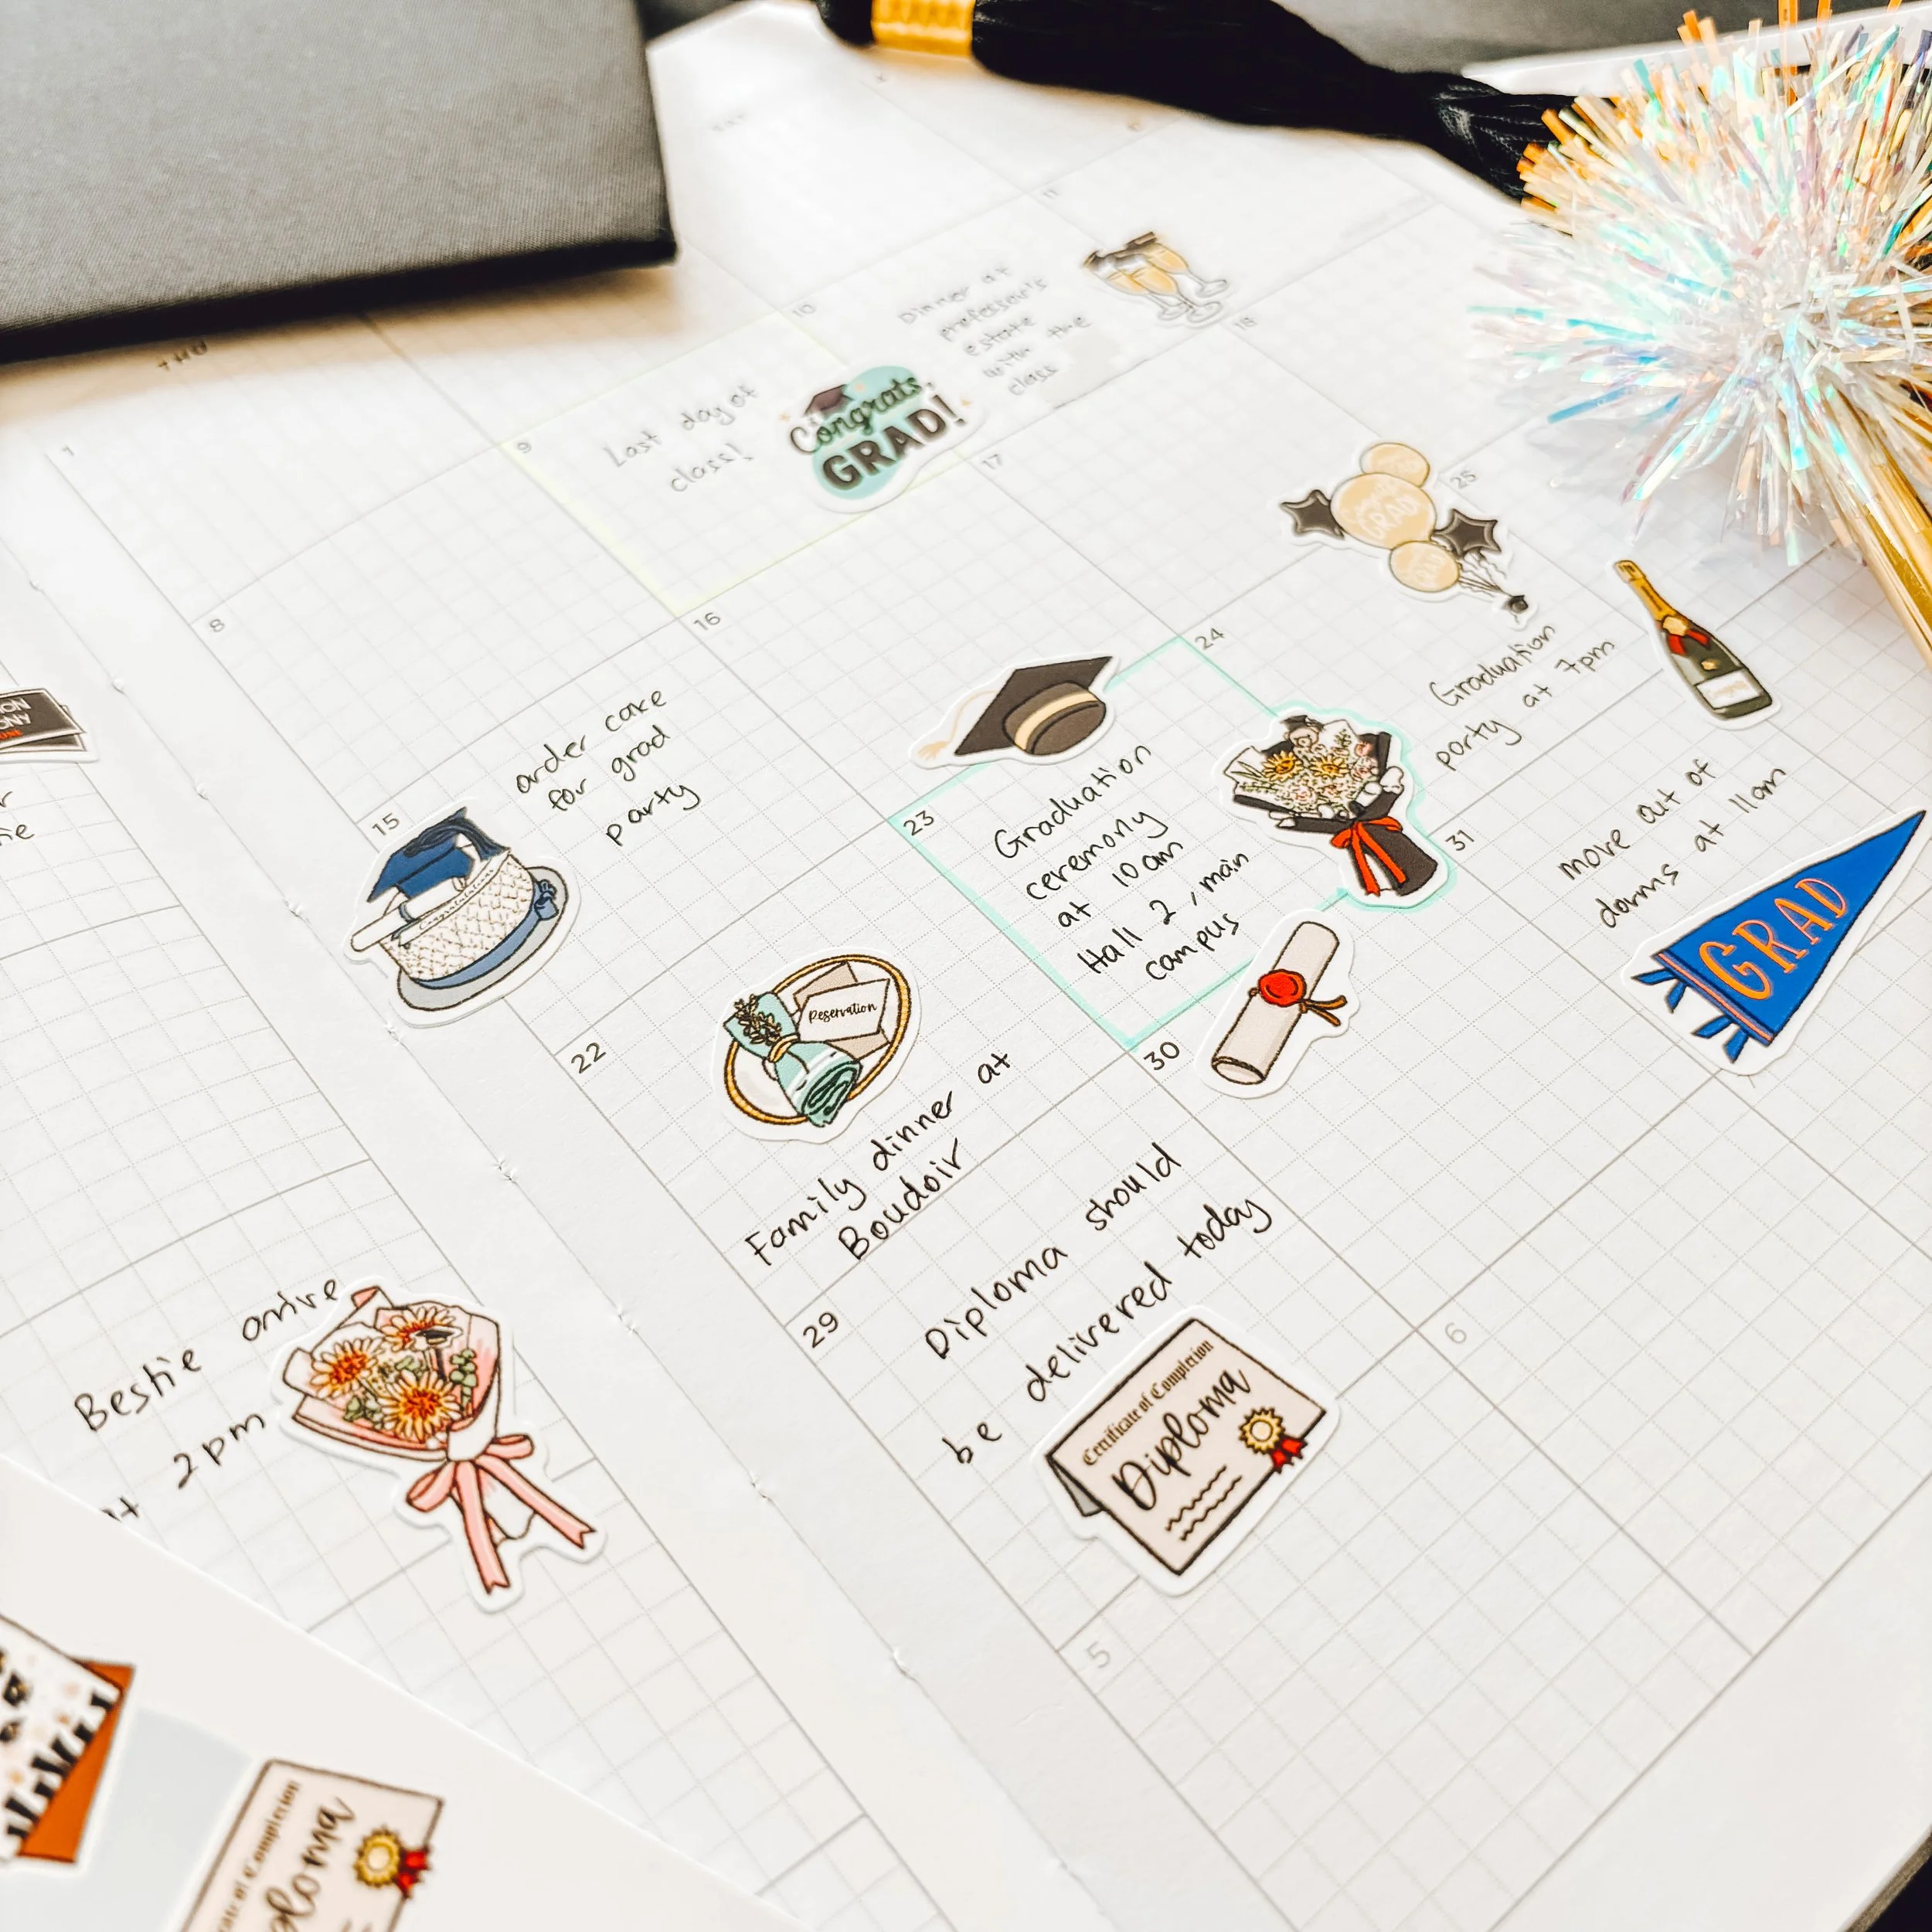 THU
1
8
9
Last day of
class!
Congrats,
GRAD!
10
Dinner at
professor's
estate
with the
class
11
15
order cake
for grad
party
Congratulations
16
17
18
22
Reservation
Family dinner at
Boudoir
23
Graduation
ceremony
at 10am
Hall 2, main
campus
24
GRAD
Graduation
party at 7pm
25
29
Diploma should
be delivered today
Certificate of Completion
Diploma
30
31
move out of
dorms at 11am
GRAD
5
6
Bestie arrive
at 2pm